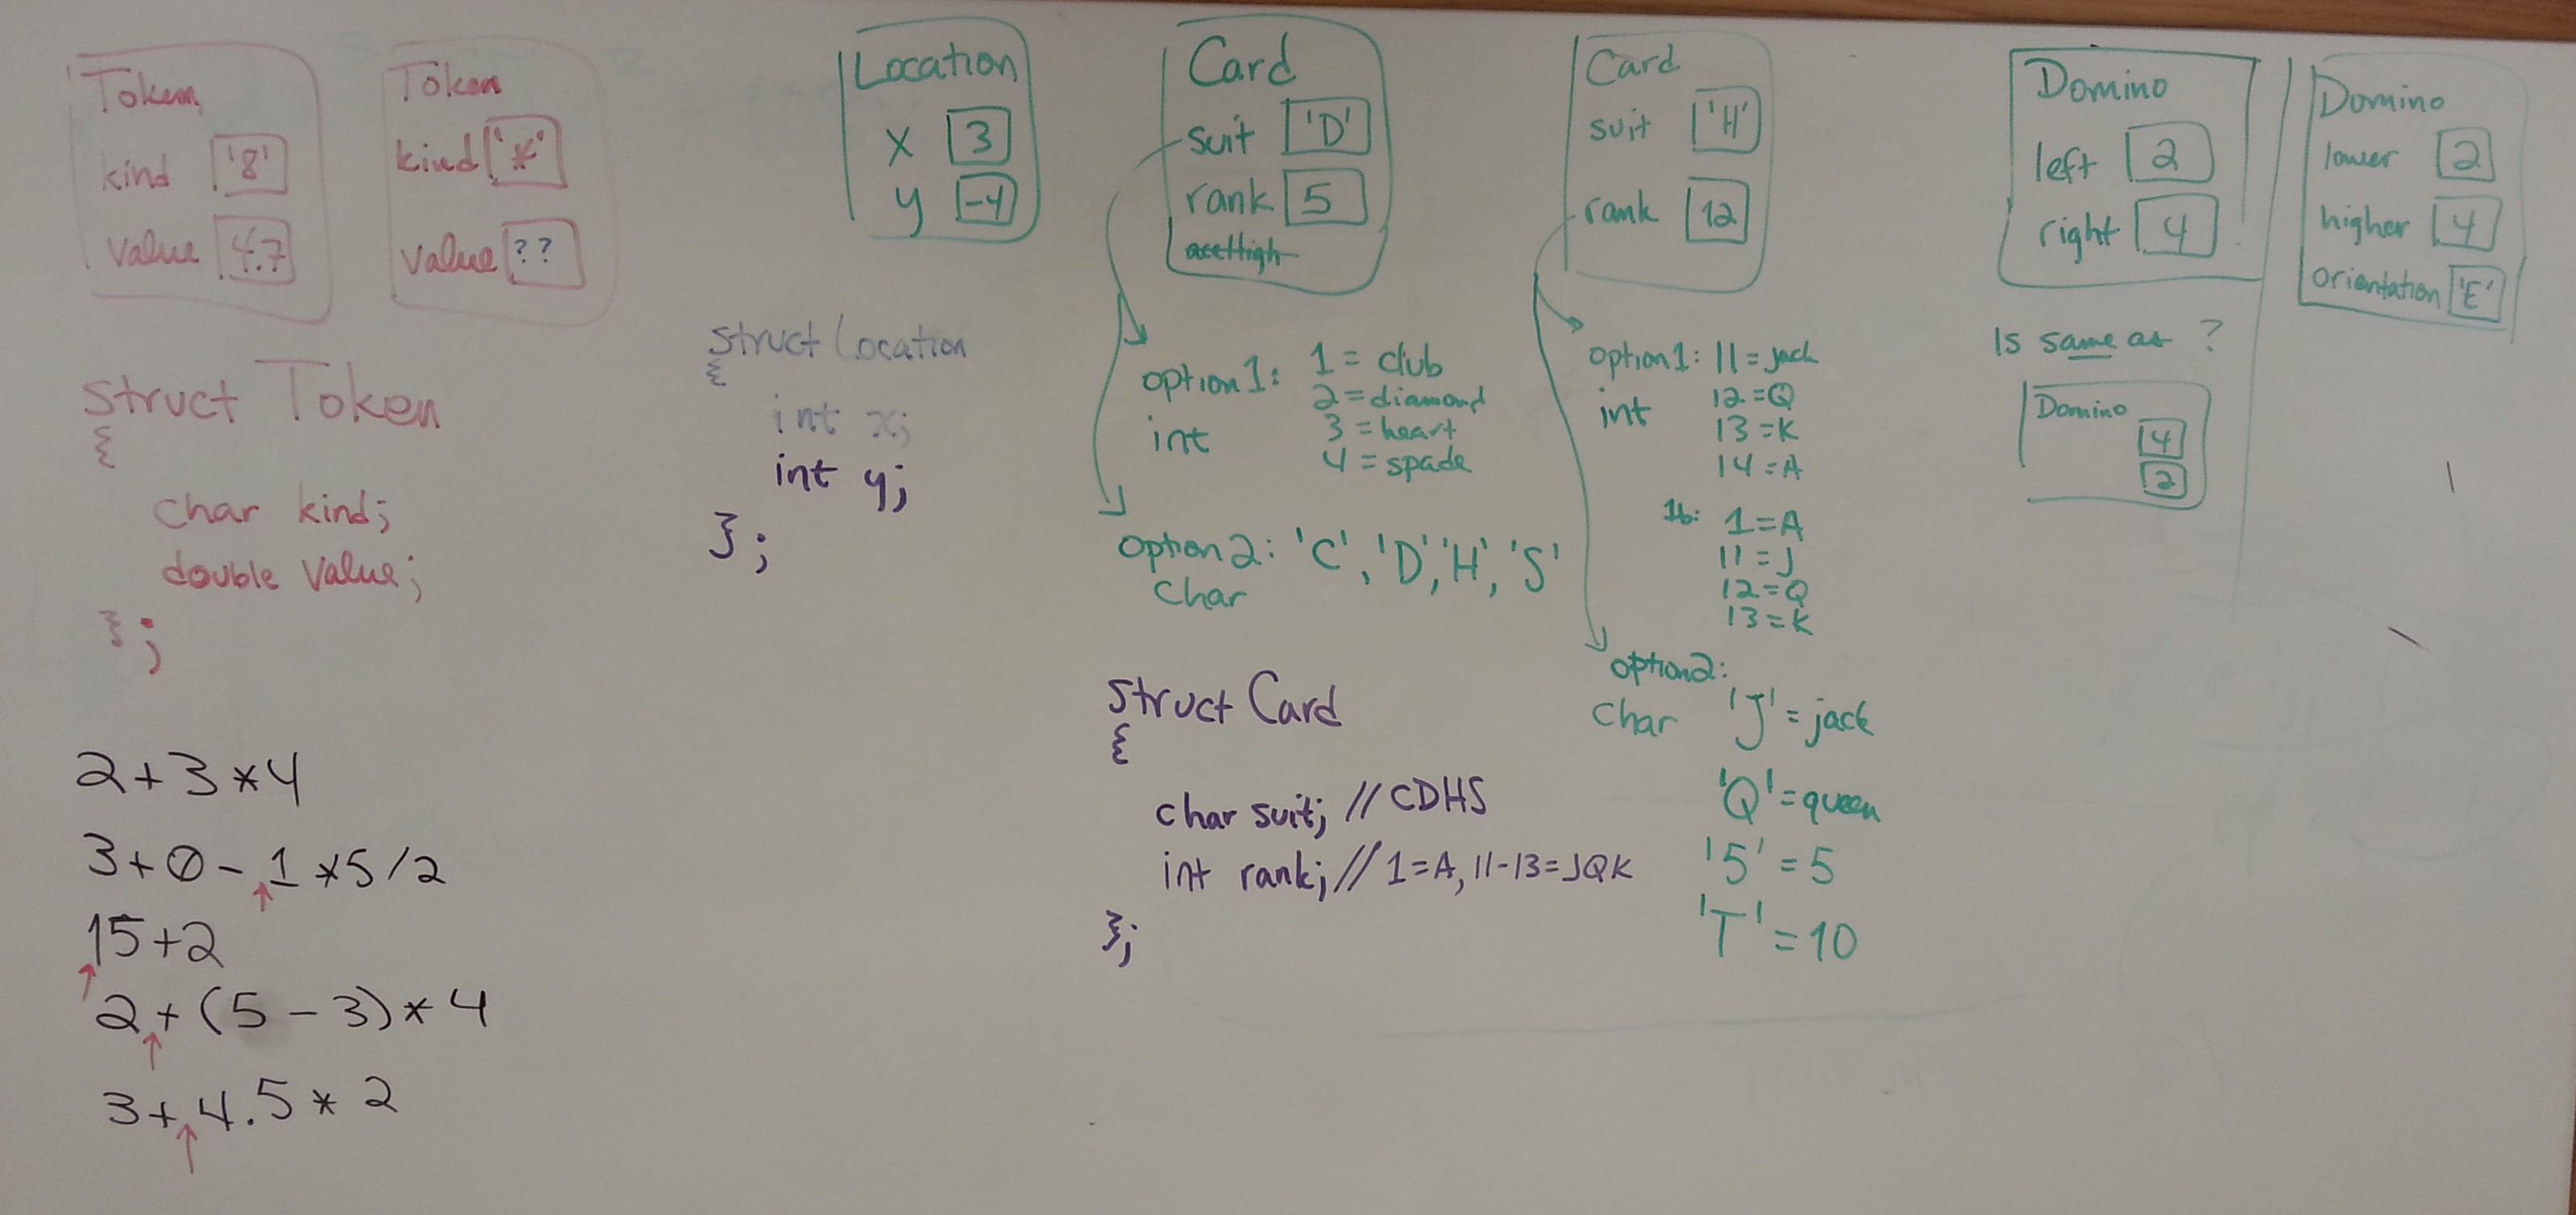 Token
kind '8'
value 4.7
Token
kind '*'
value ??
struct Token
{
char kind;
double value;
};
2+3*4
3+0-1*5/2
15+2
2+(5-3)*4
3+4.5*2
Location
x 3
y -4
struct Location
{
int x;
int y;
};
Card
suit 'D'
rank 5
aceHigh
option1: 1 = club
2 = diamond
int 3 = heart
4 = spade
option2: 'C', 'D', 'H', 'S'
char
struct Card
{
char suit; // CDHS
int rank; // 1=A, 11-13=JQK
};
Card
suit 'H'
rank 12
option1: 11 = jack
12 = Q
int 13 = K
14 = A
1b: 1 = A
11 = J
12 = Q
13 = K
option2:
char 'J' = jack
'Q' = queen
'5' = 5
'T' = 10
Domino
left 2
right 4
Is same as ?
Domino
4
2
Domino
lower 2
higher 4
orientation 'E'